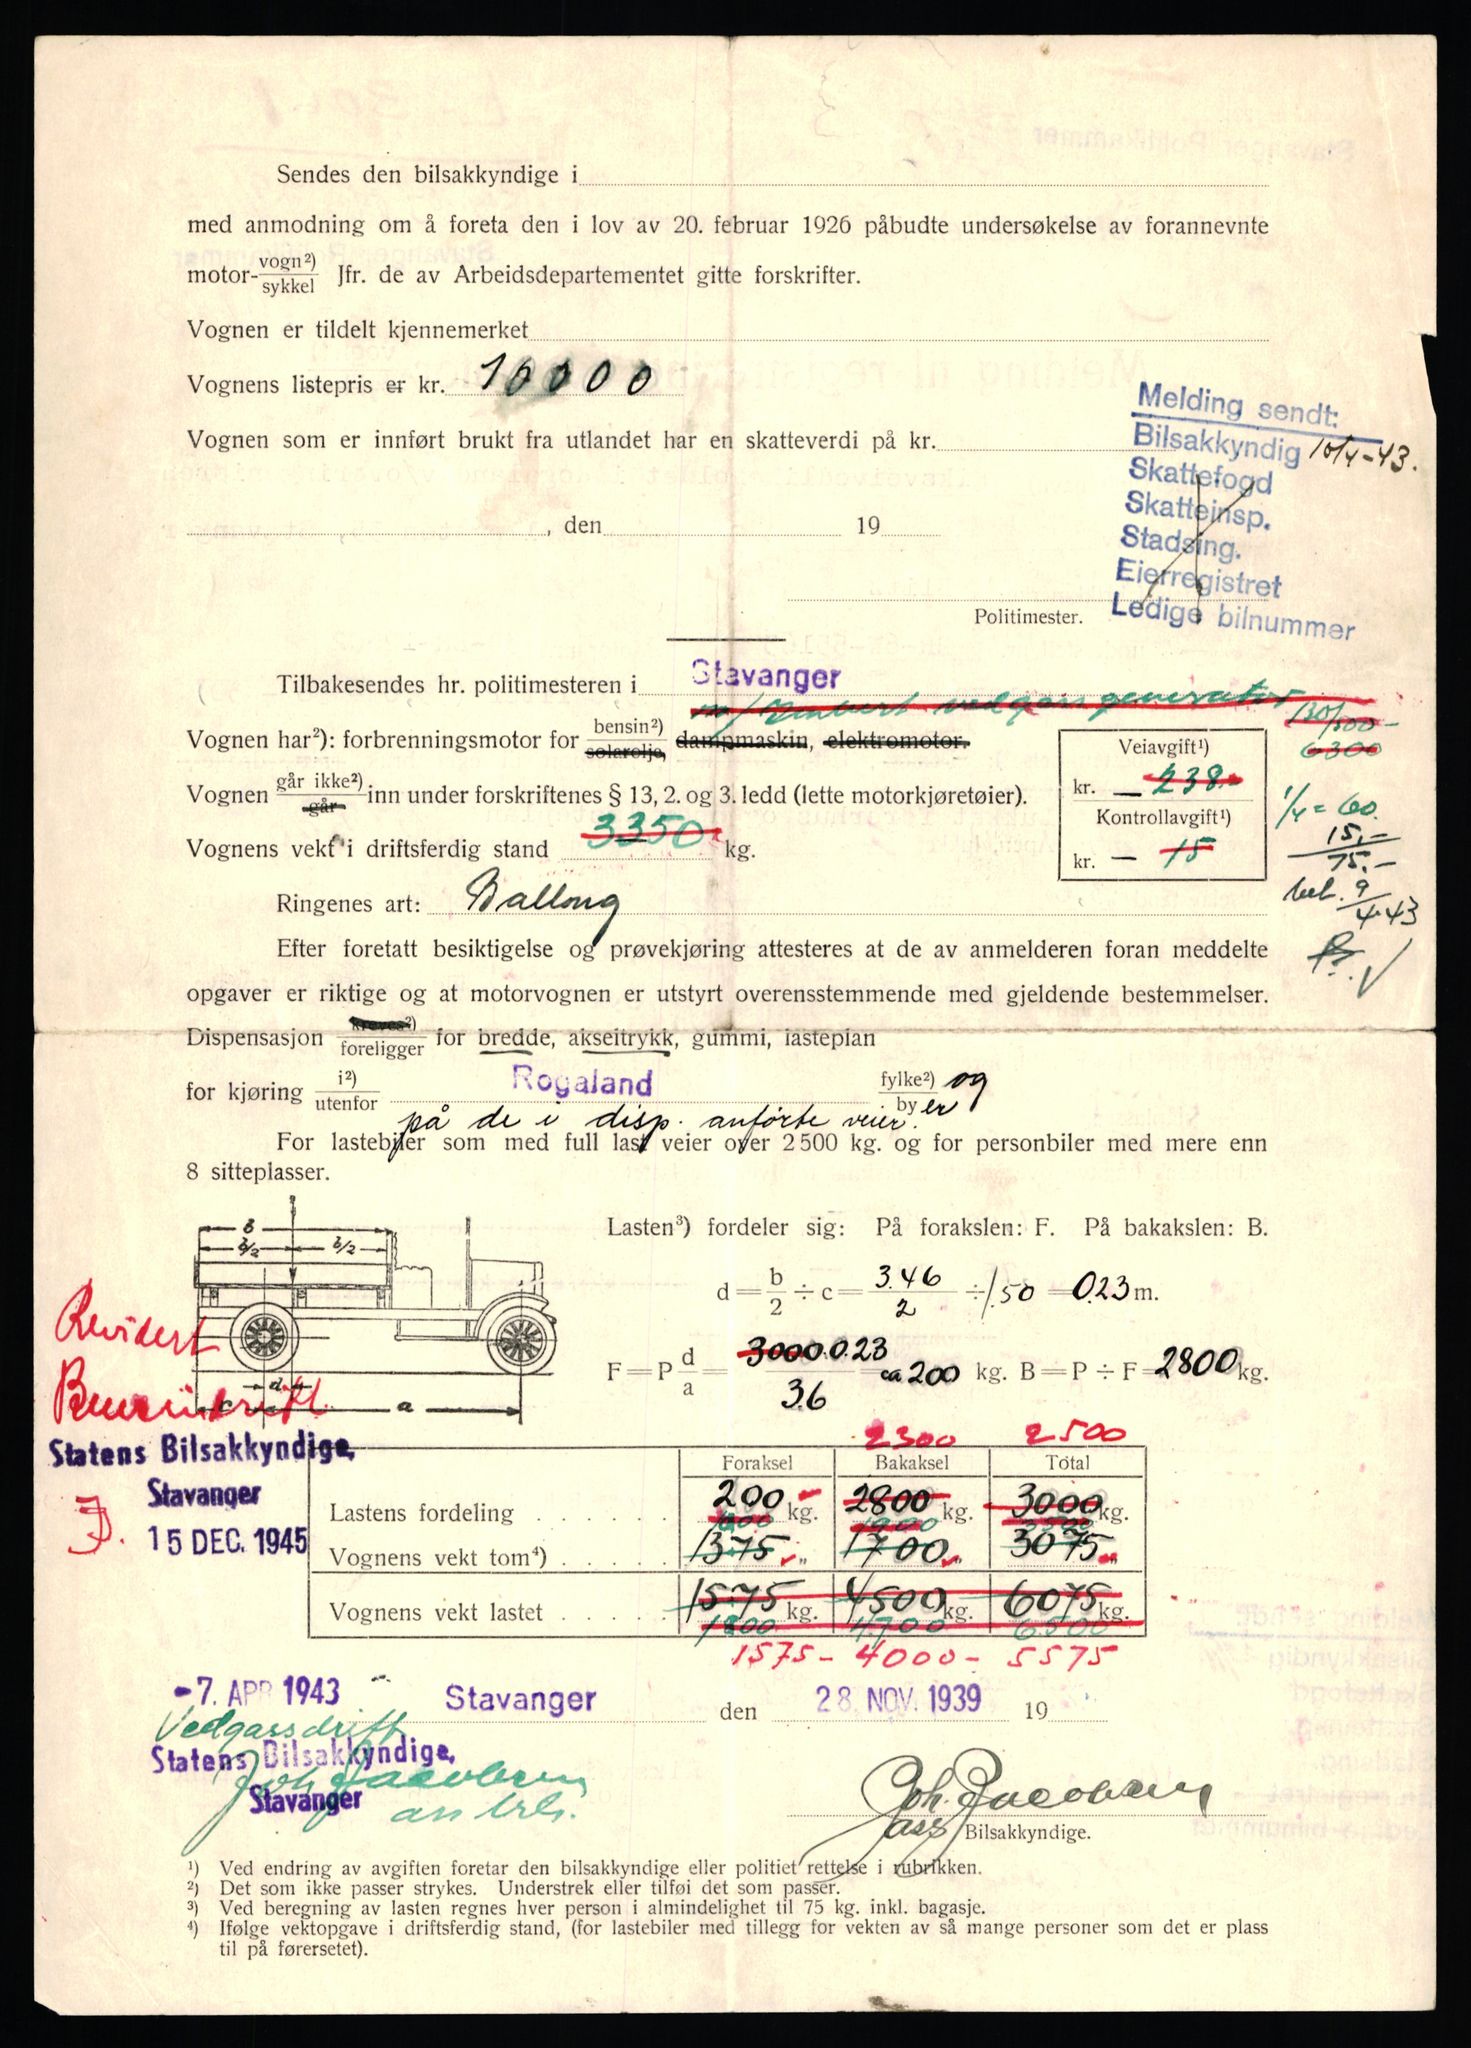 Sendes den bilsakkyndige i
med anmodning om å foreta den i lov av 20. februar 1926 påbudte undersøkelse av forannevnte
motor- vogn²) / sykkel Jfr. de av Arbeidsdepartementet gitte forskrifter.
Vognen er tildelt kjennemerket
Vognens listepris er kr. 10000
Melding sendt:
Vognen som er innført brukt fra utlandet har en skatteverdi på kr.
Bilsakkyndig 10/4-43.
Skattefogd
Skatteinsp.
, den 19
Stadsing.
Eierregistret
Politimester.
Ledige bilnummer
Tilbakesendes hr. politimesteren i Stavanger
m/ Imbert vedgassgenerator
130/500-
6300
Vognen har²): forbrenningsmotor for bensin²) / solarolje, dampmaskin, elektromotor.
Veiavgift¹)
kr. — 238.
Vognen går ikke²) / går inn under forskriftenes § 13, 2. og 3. ledd (lette motorkjøretøier).
1/4 = 60.
Kontrollavgift¹)
15.-
Vognens vekt i driftsferdig stand 3350 kg.
kr. — 15
75.-
bet. 9/4-43
Ringenes art: Ballong
Efter foretatt besiktigelse og prøvekjøring attesteres at de av anmelderen foran meddelte
opgaver er riktige og at motorvognen er utstyrt overensstemmende med gjeldende bestemmelser.
Dispensasjon kreves²) / foreligger for bredde, akseltrykk, gummi, lasteplan
for kjøring i²) / utenfor Rogaland fylke²) / by og er
på de i disp. anførte veier.
For lastebiler som med full last veier over 2500 kg. og for personbiler med mere enn
8 sitteplasser.
B
b/2 b/2
d
c a
Lasten³) fordeler sig: På forakslen: F. På bakakslen: B.
d = b/2 ÷ c = 3.46/2 ÷ 1.50 = 0.23 m.
F = P d/a = 3000.0.23/3.6 = ca 200 kg. B = P ÷ F = 2800 kg.
Revidert
Bensindrift.
Statens Bilsakkyndige,
Stavanger
15 DEC. 1945
2300 2500
Foraksel Bakaksel Total
Lastens fordeling . . . . . . 200 kg. 2800 kg. 3000 kg.
Vognens vekt tom⁴) . . . . 1375 „ 1700 „ 3075 „
Vognens vekt lastet . . . . . 1575 kg. 4500 kg. 6075 kg.
4700 6500
1575 - 4000 - 5575
-7. APR 1943 Stavanger den 28. NOV. 1939 19
Vedgassdrift
Statens Bilsakkyndige,
Joh Jacobsen
Stavanger
Joh. Jacobsen
ass Bilsakkyndige.
¹) Ved endring av avgiften foretar den bilsakkyndige eller politiet rettelse i rubrikken.
²) Det som ikke passer strykes. Understrek eller tilføi det som passer.
³) Ved beregning av lasten regnes hver person i almindelighet til 75 kg. inkl. bagasje.
⁴) Ifølge vektopgave i driftsferdig stand, (for lastebiler med tillegg for vekten av så mange personer som det er plass
til på førersetet).